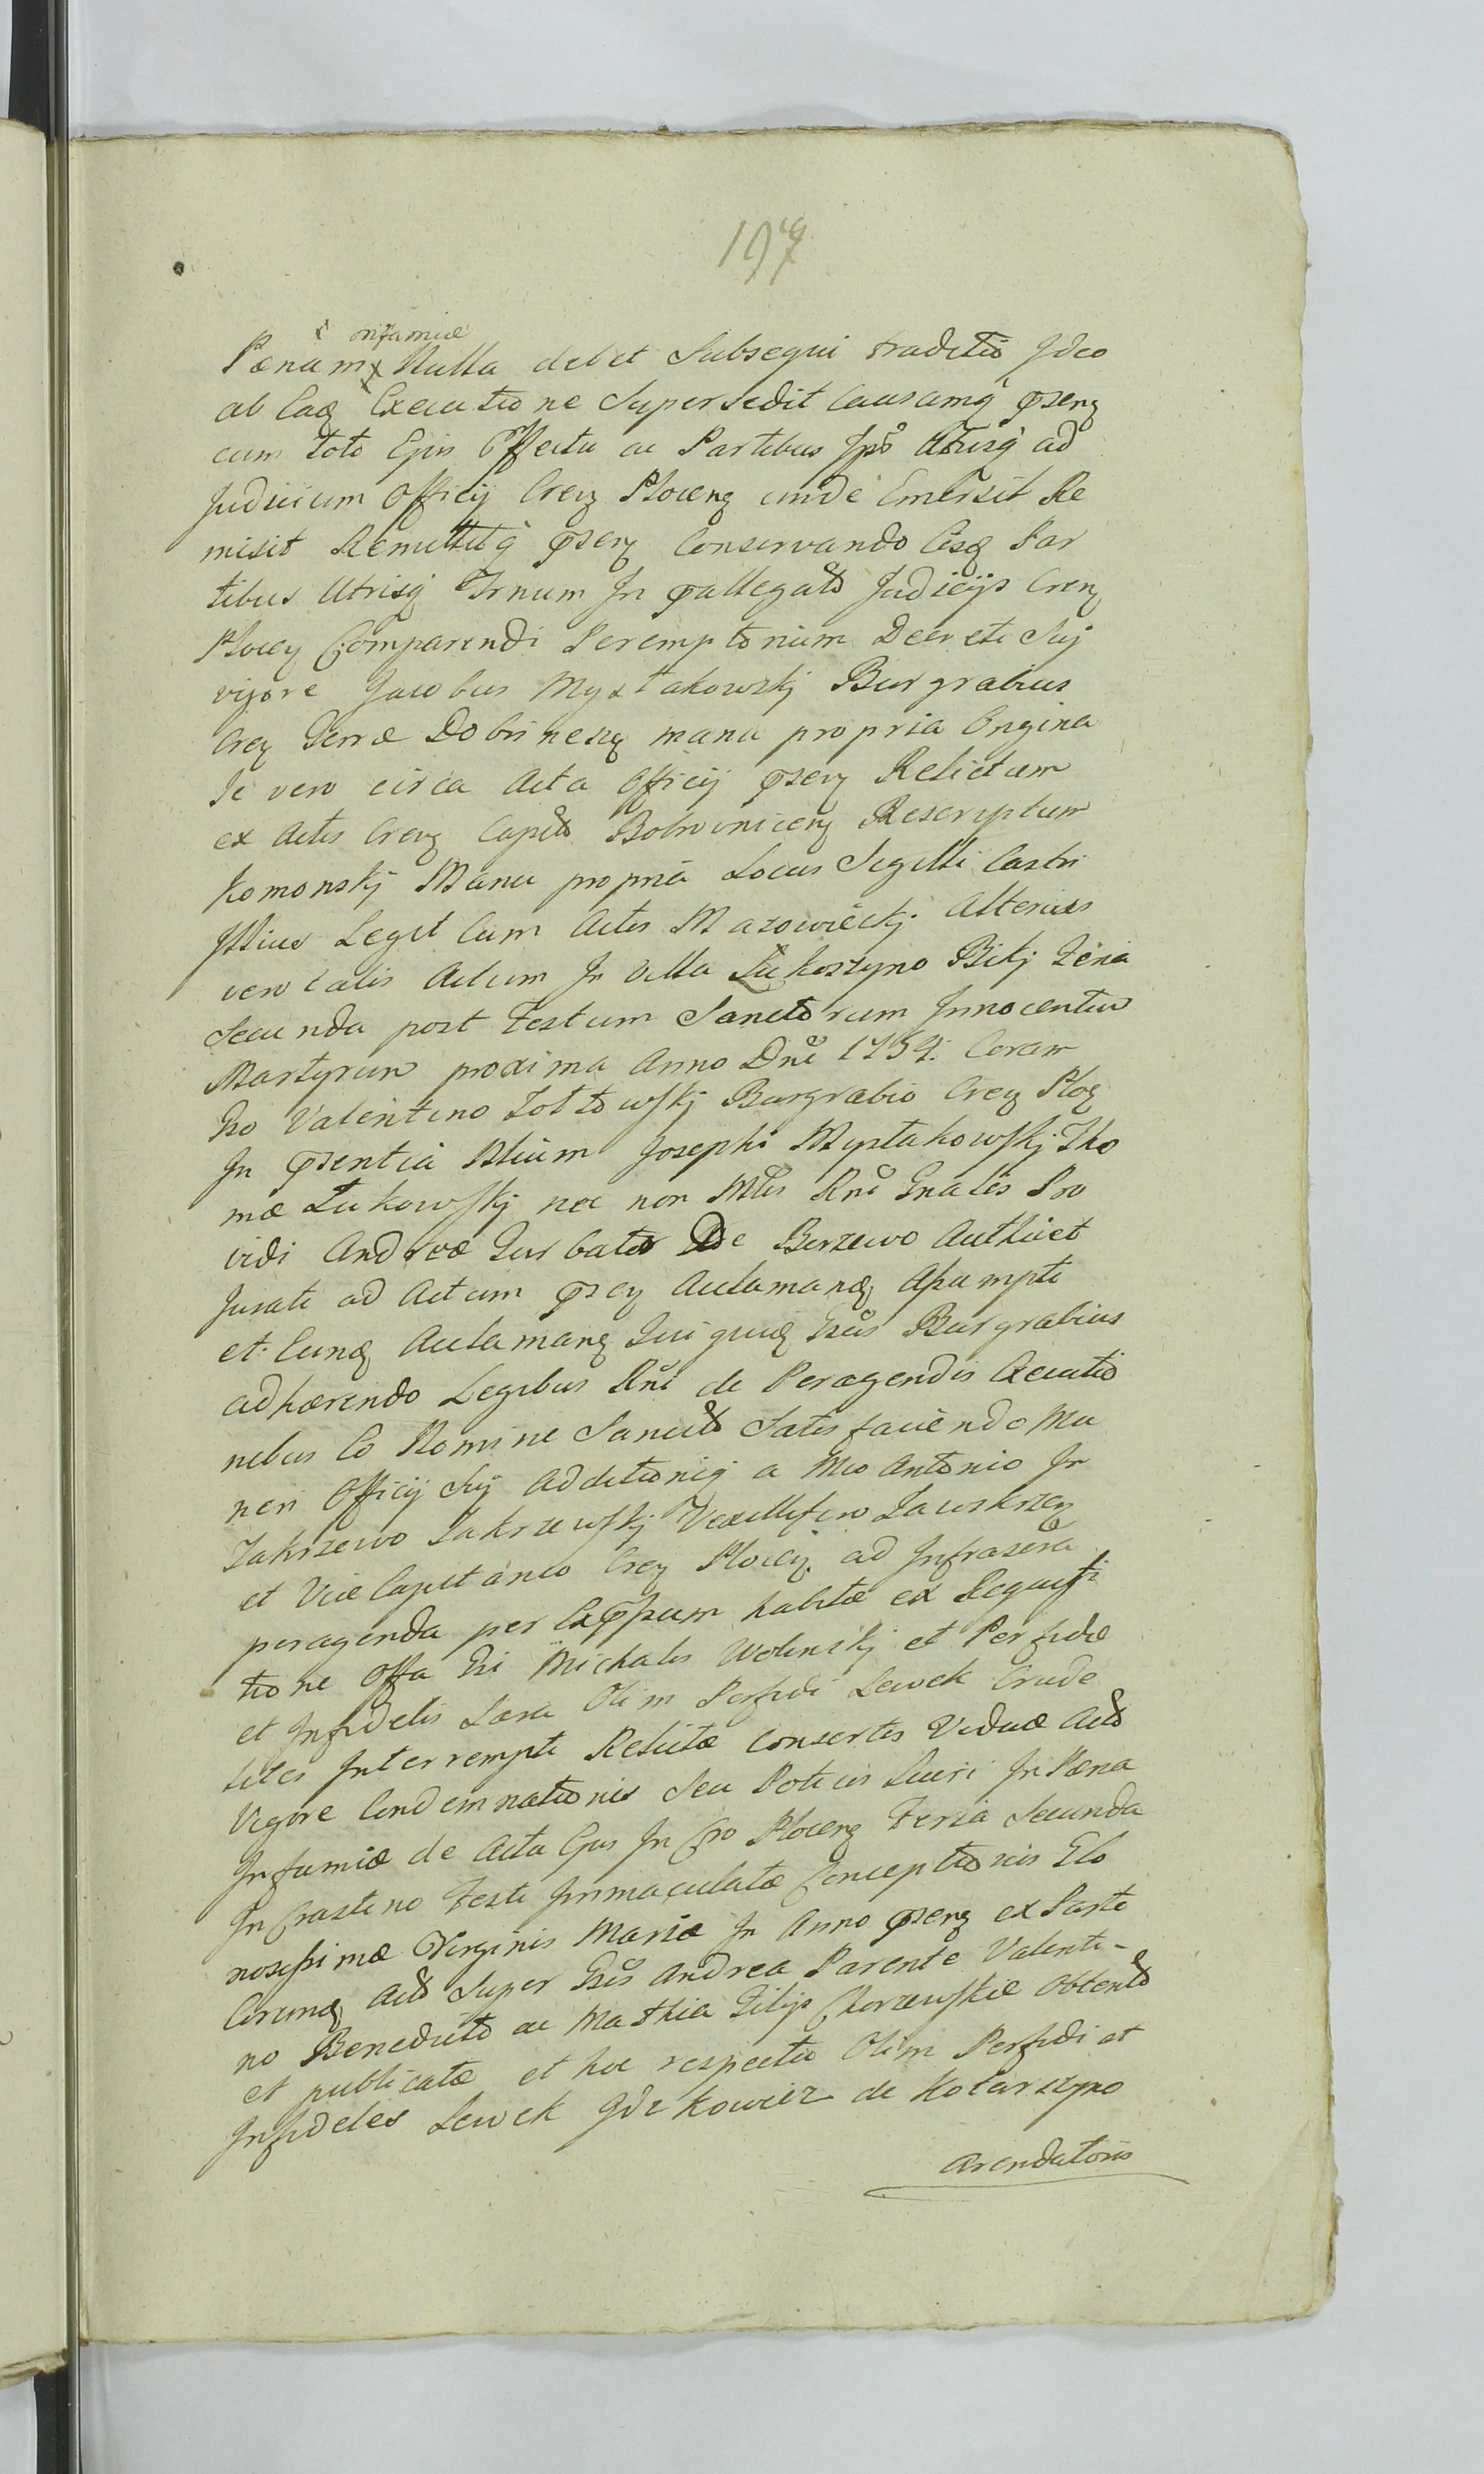 197
x infamiæ
Pænam x Nulla debet Subsequi traditio Ideo
ab Eaq Executione Supersedit Causamq pñsenq
cum toto Ejus Effectu ac Partibus Ipso Utrisq ad
Judicium Officij Crenq Plocenq unde Emersit Re
misit Remittitq pñsenq Conservando Eisq Par
tibus Utrisq Trnum In pallegato Judicijs Crenq
Plocenq Comparendi Peremptorium Decreti Suj
vigore Jacobus Mystakowskj Burgrabius
Crenq Terræ Dobrinensq manu propria Origina
le vero circa Acta Officij pñsenq Relictum
ex Actis Crenq Capito Bobrovnicenq Rescriptum
Komonskj Manu propria Locus Sigilli Castri
Illius Legit Cum Actis Mazowieckj. Alterius
vero talis Actum In Villa Lukoszyno Bikj Feria
Secunda post Festum Sanctorum Innocentium
Martyrum proxima Anno Dnī 1759. Coram
Gso Valentino Zoltowskj Burgrabio Crenq Ploq
In pñsentia Nlium Josephi Mystakowskj Tho
mæ Lukowskj nec non Mlis Rnī Gnalis Pro
vidi Andreæ Turbator De Burzewo Authĩcet
Jurati ad Actum pñsenq Aulamanq Assumpti
et Eunq Aulamanq Quiquiq Gsus Burgrabius
adhærendo Legibus Rnī de Peragendis Executio
nibus Eo Nomine Sancito Satisfaciendo Mu
neri Officij Suj Additioniq a Mco Antonio In
Zakrzewo Zakrzewskj Vexillifero Zawskrzenq
et Vice Capitaneo Crenq Plocenq ad Infrascra
peragenda per Expssum habitæ ex Requisi
tione Offa Gsi Michalis Wolinskj et Perfidæ
et Infidelis Sara Olim Perfidi Lewek Crude
liter Interrempti Relictæ Consortis Viduæ Acto
Vigore Condemnationis Seu Potius Lucri In Pæna
Infamiæ de Acta Ejus In Cro Plocenq Feria Secunda
In Crastino Festi Immaculatæ Conceptionis Glo
riosissimæ Virginis Mariæ In Anno pñsenq ex Parte
Eorunq Acto Super Gsis Andrea Parente Valenti-
no Benedicto ac Mathia Filijs Chorzewskie Obtento
et publicatæ et hoc respectu Olim Perfidi et
Infideles Lewek Idzkowicz de Kotarszyno
Arendatoris